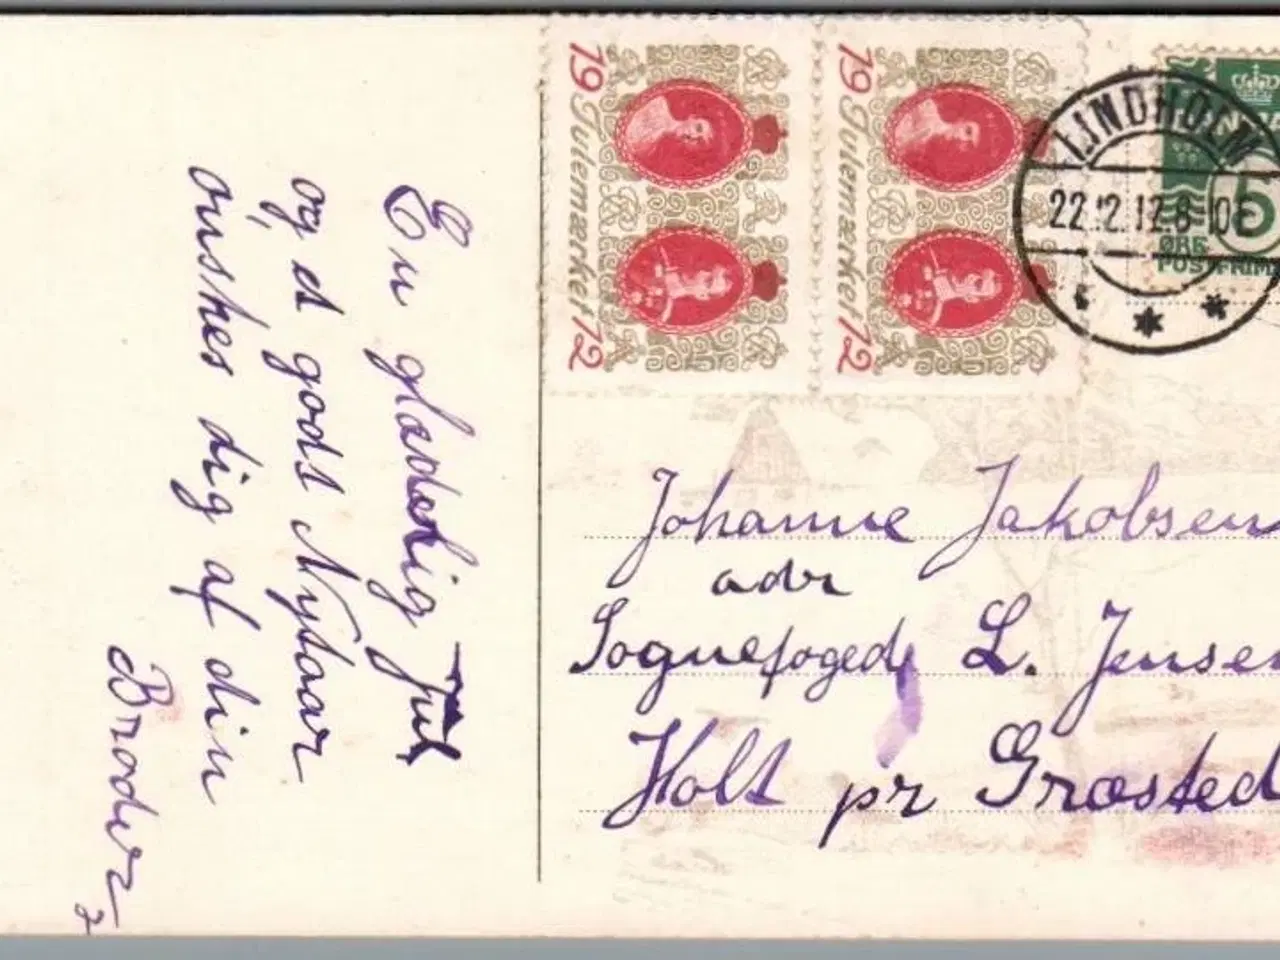 En glædelig Jul
og et godt Nytaar
ønskes dig af din
Broder
19 Julemærket 12
19 Julemærket 12
LINDHOLM
22.12.12.8-10E
5
ØRE
POSTFRIM
Johanne Jakobsen
adr
Sognefoged L. Jensen
Holt pr Græsted